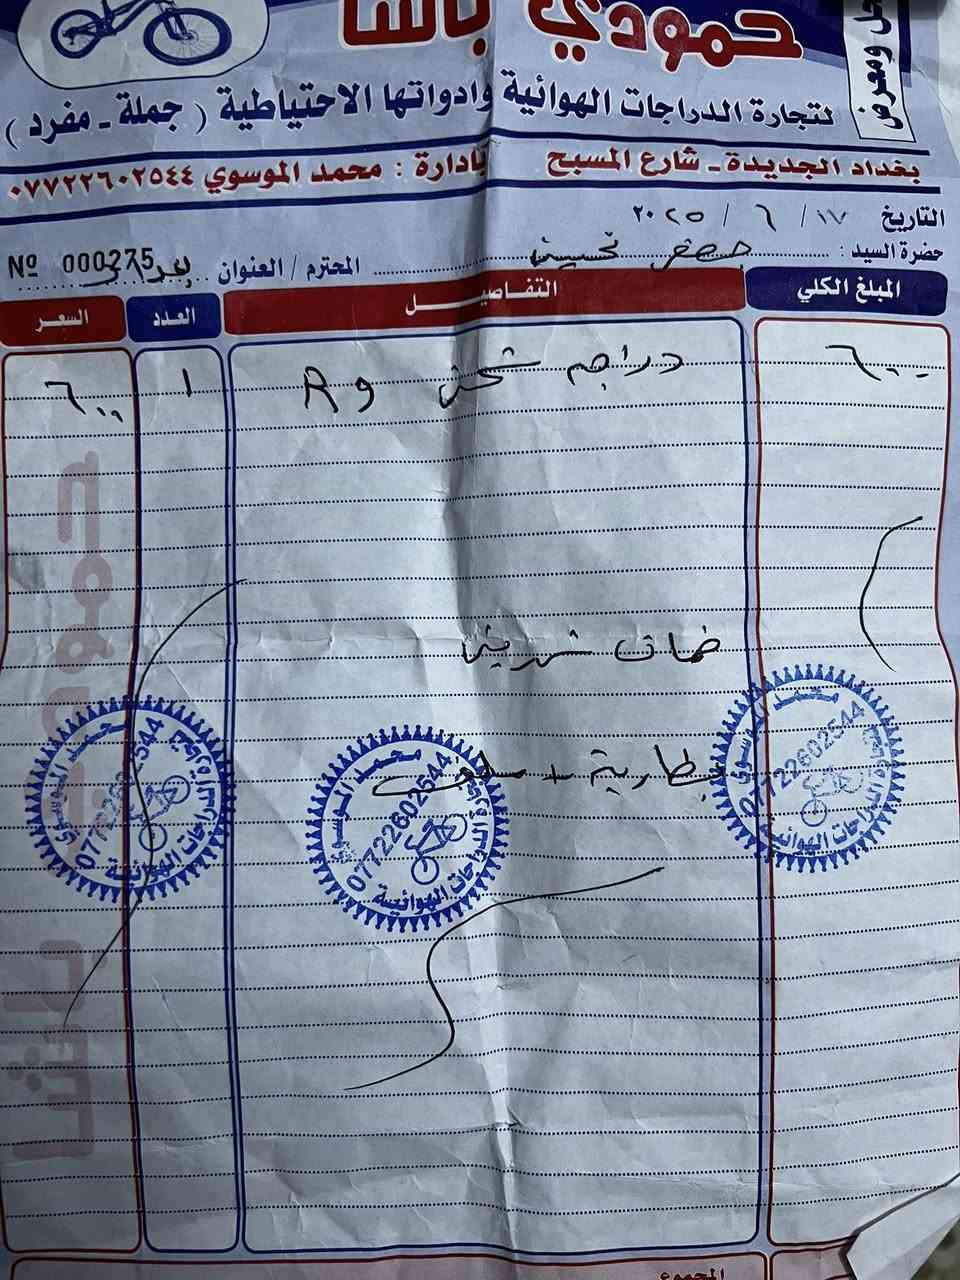 حمودي باشا
محل ومعرض
لتجارة الدراجات الهوائية وادواتها الاحتياطية ( جملة - مفرد )
بغداد الجديدة - شارع المسبح بادارة : محمد الموسوي ٠٧٧٢٢٦٠٢٥٤٤
التاريخ ١٧ / ٦ / ٢٠٢٥
حضرة السيد : جعفر تحسين المحترم / العنوان بغداد Nº 000275
المبلغ الكلي التفاصيل العدد السعر
٦٠٠ دراجه شحن R9 ١ ٦٠٠
ضمان شهرين
بطارية + سلف
محمد الموسوي
07722602544
لتجارة الدراجات الهوائية
محمد الموسوي
07722602544
لتجارة الدراجات الهوائية
محمد الموسوي
07722602544
لتجارة الدراجات الهوائية
حمودي باشا
المجموع